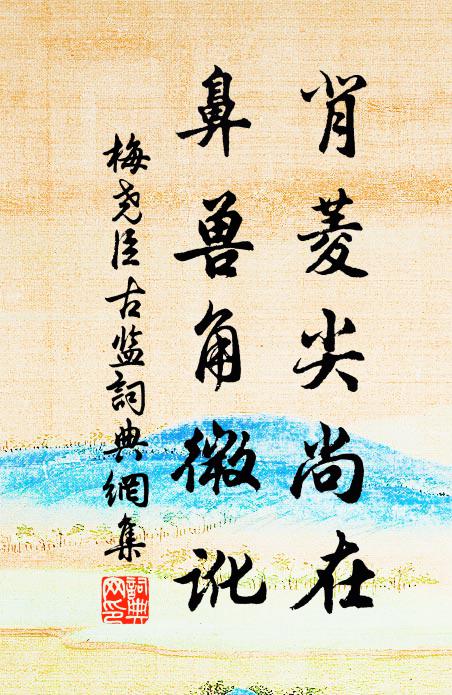 肖菱尖尚在
鼻兽角微讹
梅尧臣古监詞典網集
詞典